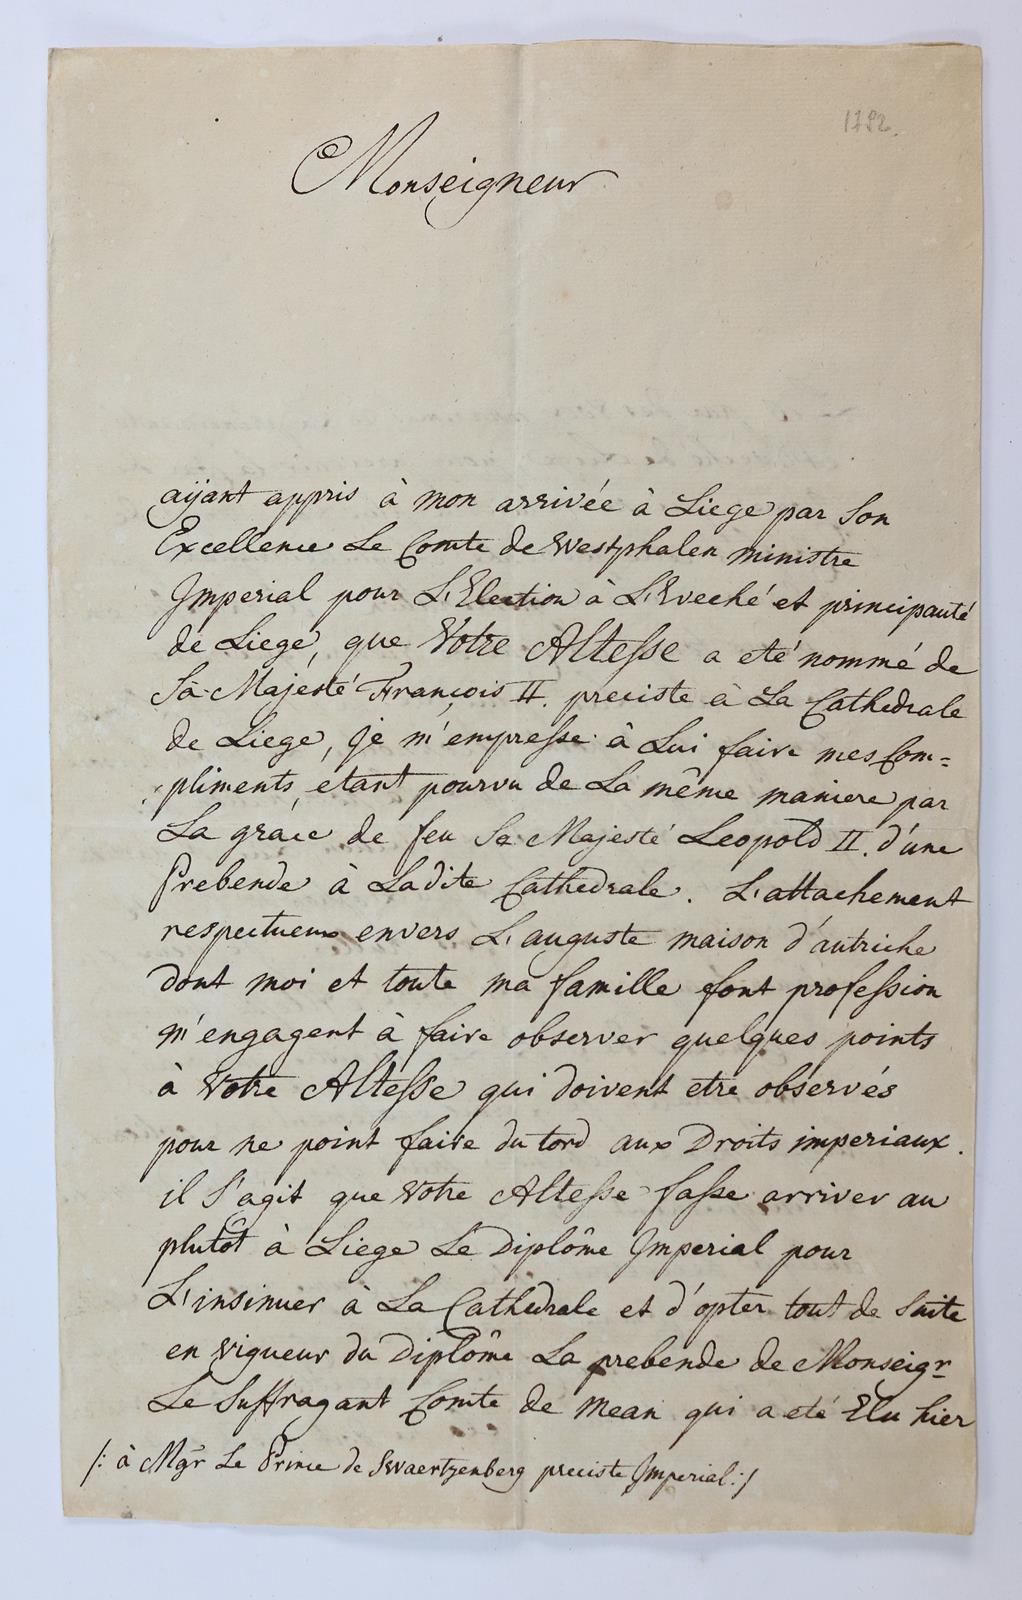 1792.
Monseigneur
aÿant appris à mon arrivée à Liege par Son
Excellence Le Comte de Westphalen ministre
Imperial pour L'Election à L'Eveché et principauté
de Liege, que Votre Altesse a eté nommé de
Sa Majesté François II. preciste à La Cathedrale
de Liege, je m'empresse à Lui faire mes Com=
pliments, etant pourvu de La même maniere par
La grace de feu Sa Majesté Leopold II. d'une
Prebende à Ladite Cathedrale. L'attachement
respectueux envers L'auguste maison d'autriche
dont moi et toute ma famille font profession
m'engagent à faire observer quelques points
à Votre Altesse qui doivent etre observés
pour ne point faire du tord aux Droits imperiaux.
il S'agit que Votre Altesse fasse arriver au
plutôt à Liege Le Diplôme Imperial pour
L'insinuer à La Cathedrale et d'opter tout de Suite
en vigueur du Diplôme La prebende de Monseigr
Le Suffragant Comte de Mean qui a eté Elu hier
/: à Mgr Le Prince de Swaertzenberg preciste Imperial :/